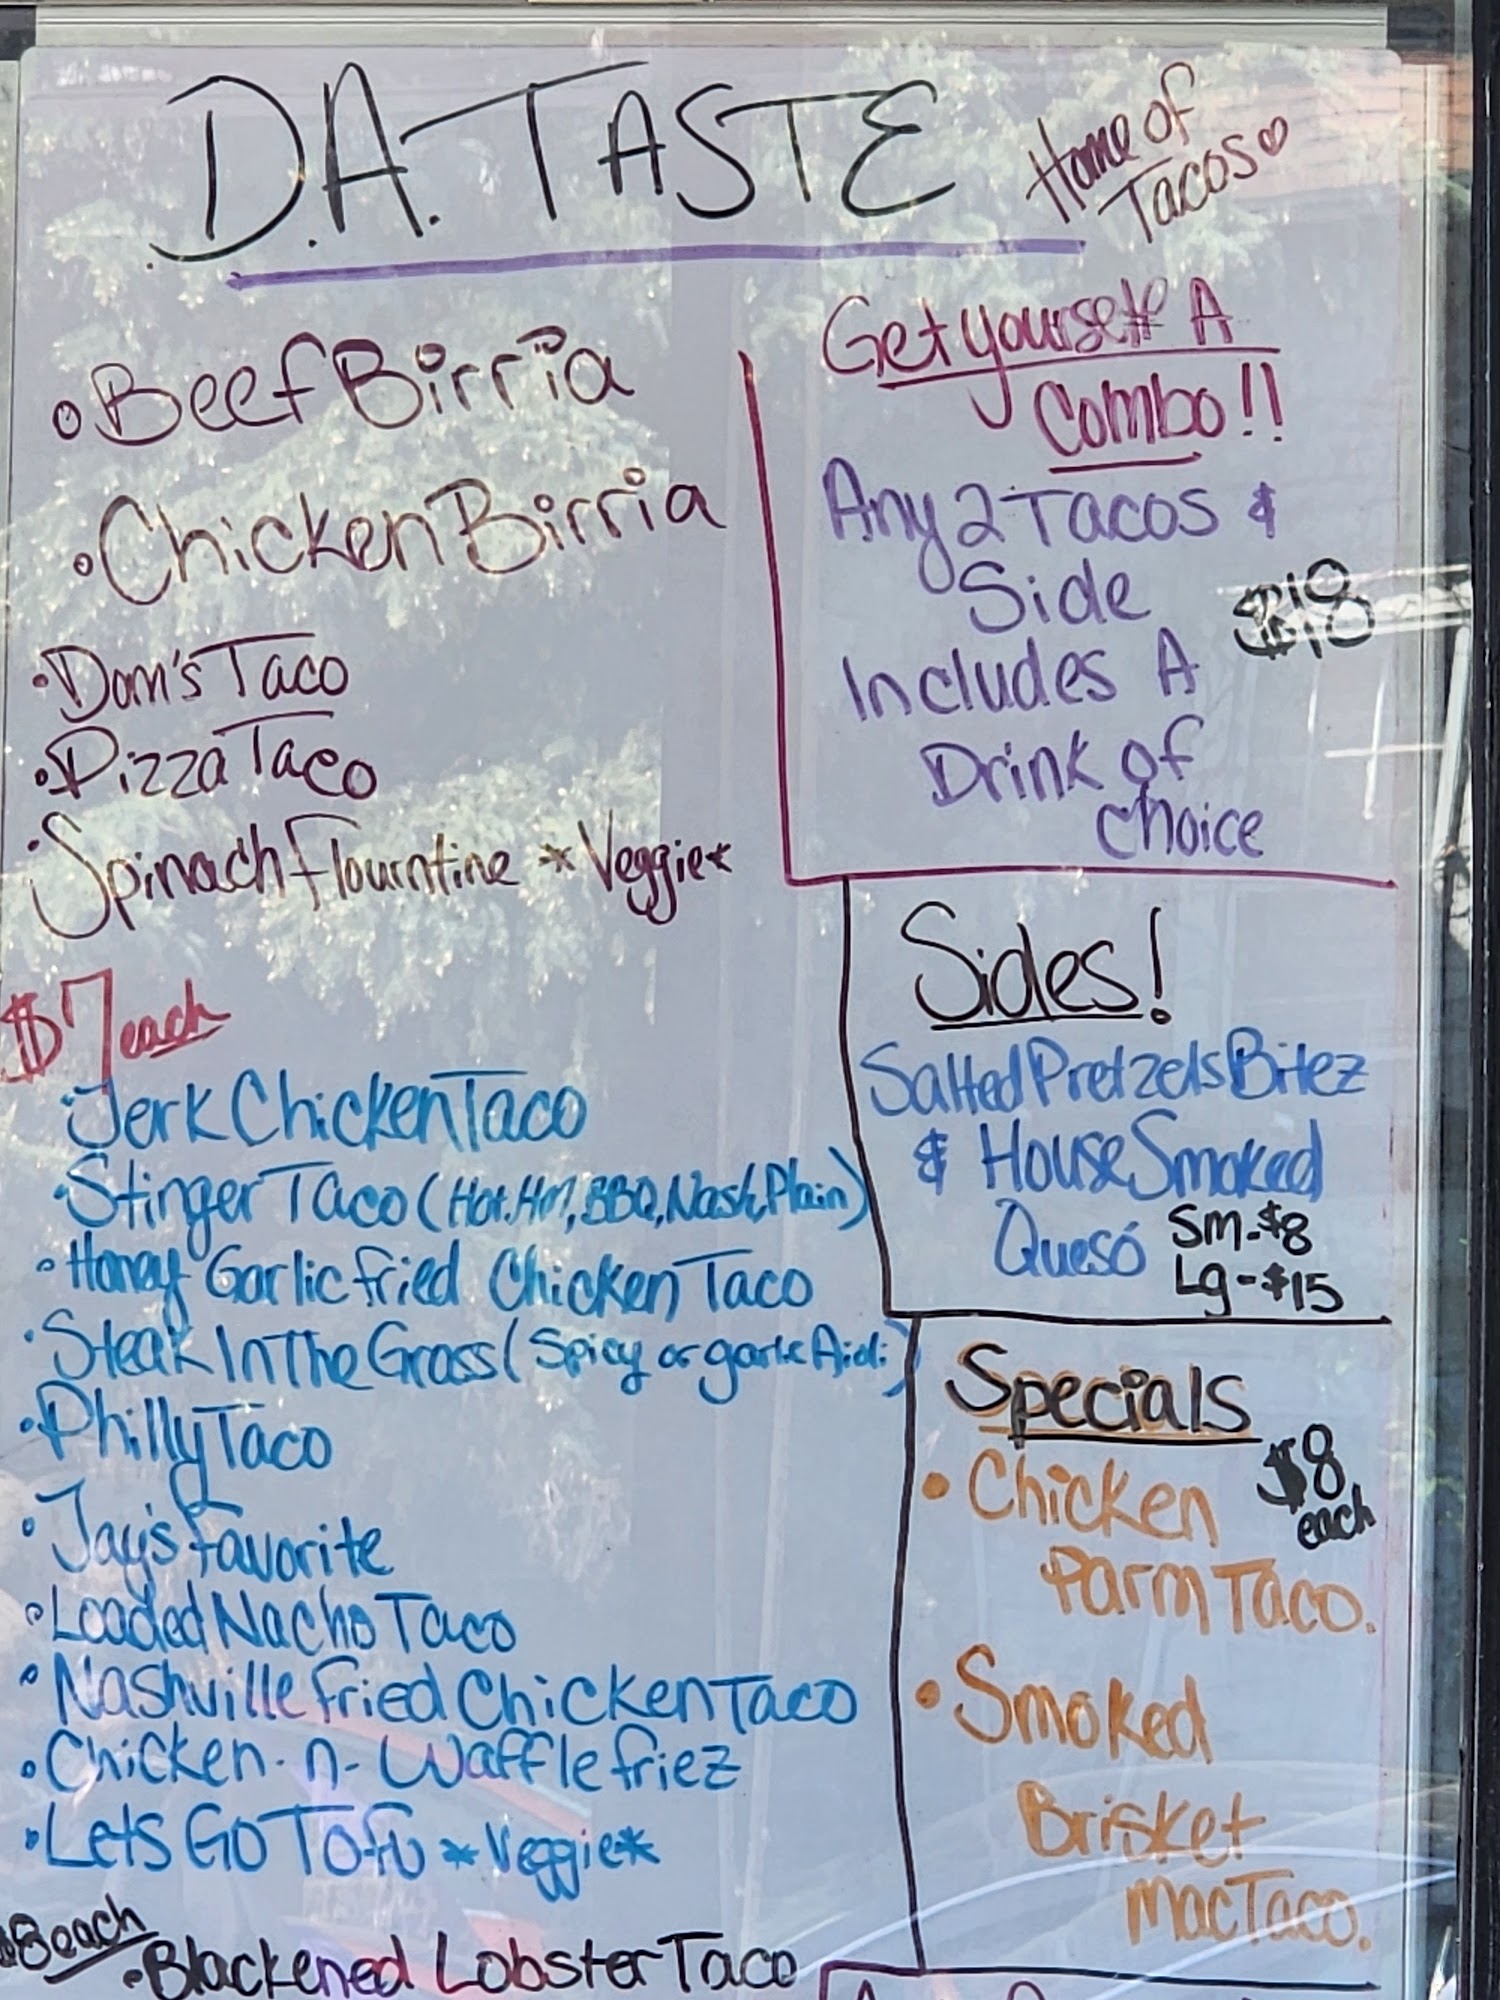 D.A. TASTE
Home of
Tacos♡
• Beef Birria
• Chicken Birria
• Dom's Taco
• Pizza Taco
• Spinach Flourntine *Veggie*
$7 each
• Jerk Chicken Taco
• Stinger Taco (Hot, Hn!, BBQ, Nash, Plain)
• Honey Garlic fried Chicken Taco
• Steak In The Grass (Spicy or garlic Aioli)
• Philly Taco
• Jay's Favorite
• Loaded Nacho Taco
• Nashville Fried Chicken Taco
• Chicken-n-Waffle friez
• Lets Go Tofu *Veggie*
$8 each
• Blackened Lobster Taco
Get yourself A
Combo!!
Any 2 Tacos &
Side
$18
Includes A
Drink of
choice
Sides!
Salted Pretzels Bitez
& House Smoked
Quesó
Sm-$8
Lg-$15
Specials
$8
each
• Chicken
Parm Taco.
• Smoked
Brisket
Mac Taco.